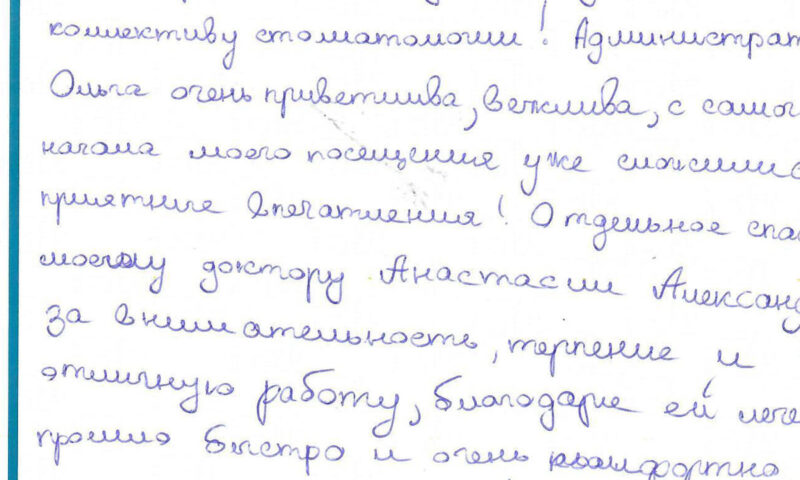 коллективу стоматологии! Администрат
Ольга очень приветлива, вежлива, с самог
начала моего посещения уже сложились
приятные впечатления! Отдельное спас
моему доктору Анастасии Александ
за внимательность, терпение и
отличную работу, благодаря ей лече
прошло быстро и очень комфортно